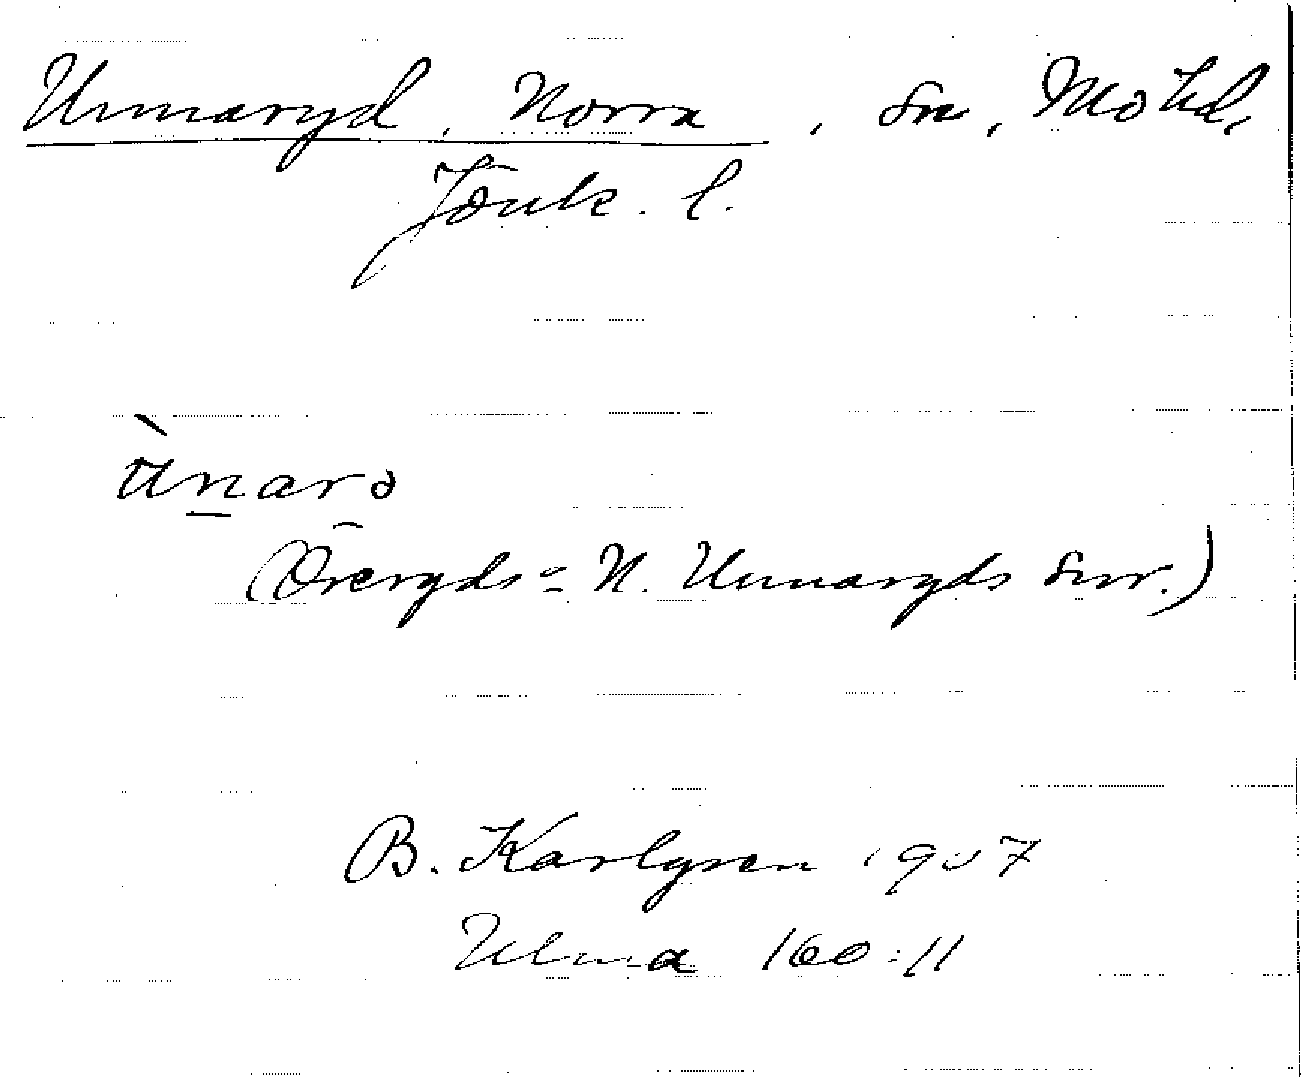 Unnaryd, Norra, sn, Mo hd,
Jönk. l.
ùnarə
(Öreryds- N. Unnaryds snr.)
B. Karlgren 1907
Ulma 160:11